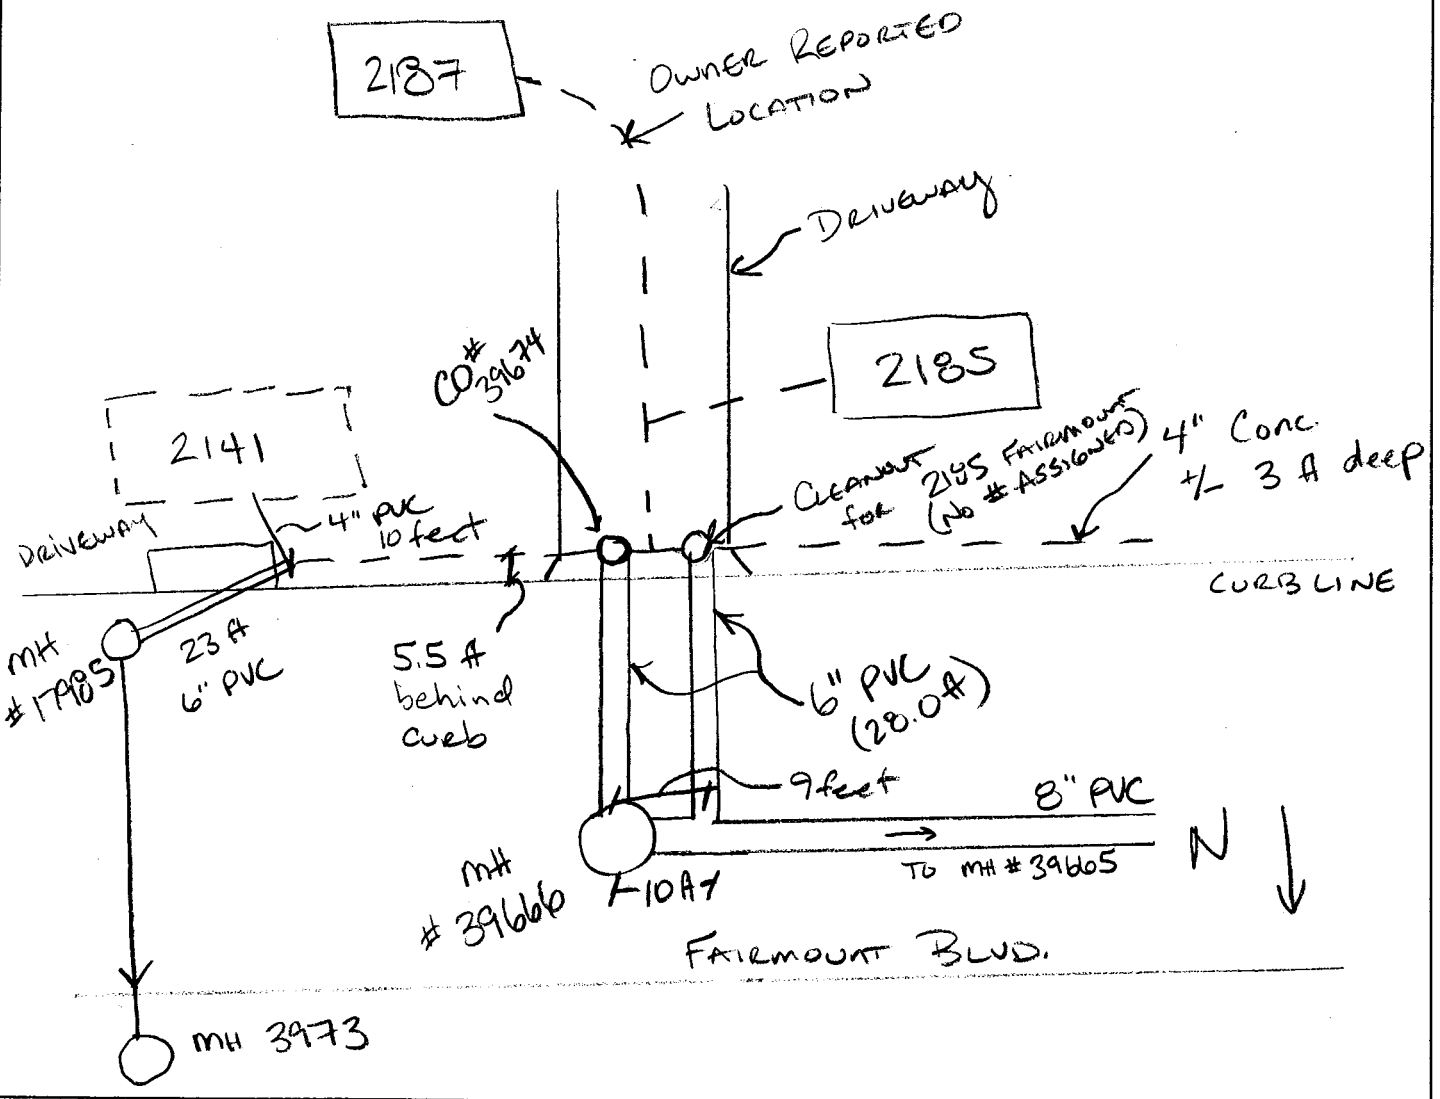 2187
OWNER REPORTED
LOCATION
DRIVEWAY
CO# 39674
2185
2141
CLEANOUT
for 2185 FAIRMOUNT
(NO # ASSIGNED)
4" Conc.
+/- 3 ft deep
DRIVEWAY
4" PVC
10 feet
CURB LINE
MH
#17985
23 ft
6" PVC
5.5 ft
behind
curb
6" PVC
(28.0 ft)
9 feet
8" PVC
N
MH
# 39666
10 ft
TO MH # 39665
FAIRMOUNT BLVD.
MH 3973